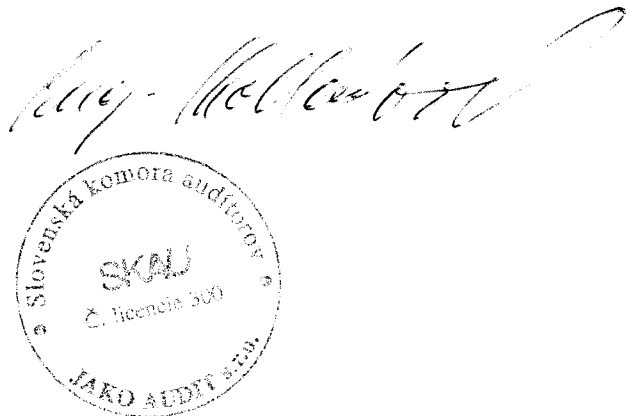 Ing.
Slovenská komora audítorov
SKAU
Č. licencie 300
JAKO AUDIT s.r.o.